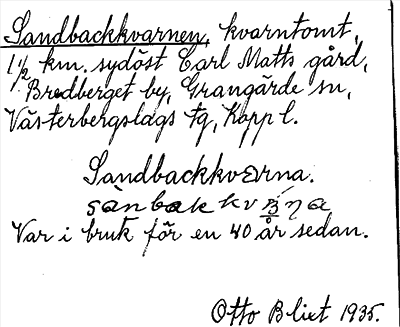 Sandbackkvarnen, kvarntomt,
1 1/2 km. sydöst Carl Matts gård,
Bredberget by, Grangärde sn,
Västerbergslags fg, Kopp l.
Sandbackkværna.
Var i bruk för en 40 år sedan.
Otto Blixt 1935.